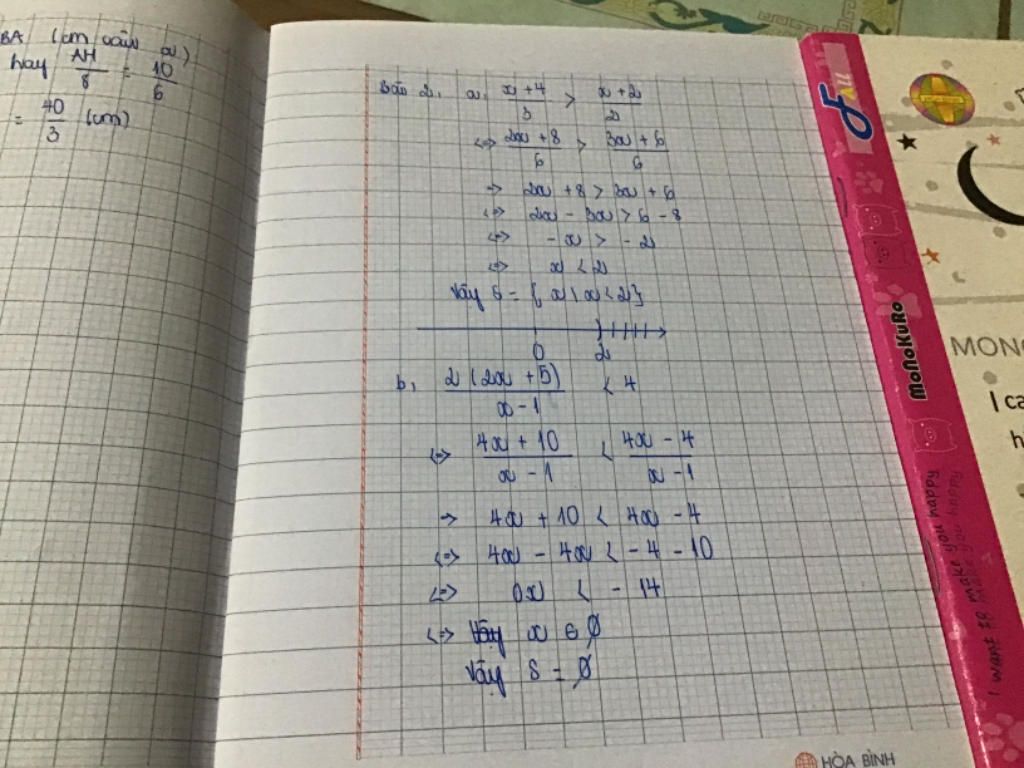 BA (cm câu a)
hay AH/8 = 10/6
= 40/3 (cm)
Bài 2, a, x+4/3 > x+2/2
<=> 2x+8/6 > 3x+6/6
=> 2x +8 > 3x + 6
<=> 2x - 3x > 6 - 8
<=> -x > -2
<=> x < 2
Vậy S = { x | x < 2}
0 2
b, 2(2x+5)/x-1 < 4
<=> 4x+10/x-1 < 4x-4/x-1
=> 4x + 10 < 4x - 4
<=> 4x - 4x < -4 - 10
<=> 0x < -14
<=> x ∈ ∅
Vậy S = ∅
HÒA BÌNH
ALL
MoNoKuRo
I want to make you happy
MONO
I ca
h